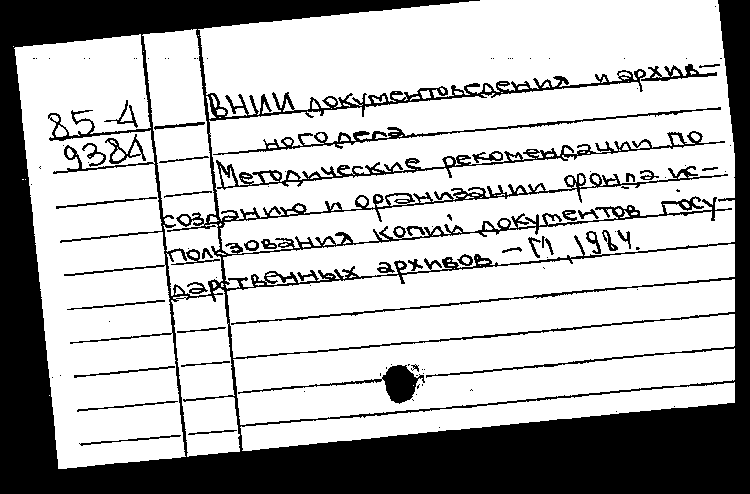 85-4
9384
ВНИИ документоведения и архив-
ного дела.
Методические рекомендации по
созданию и организации фонда ис-
пользования копий документов госу-
дарственных архивов. - М, 1984.